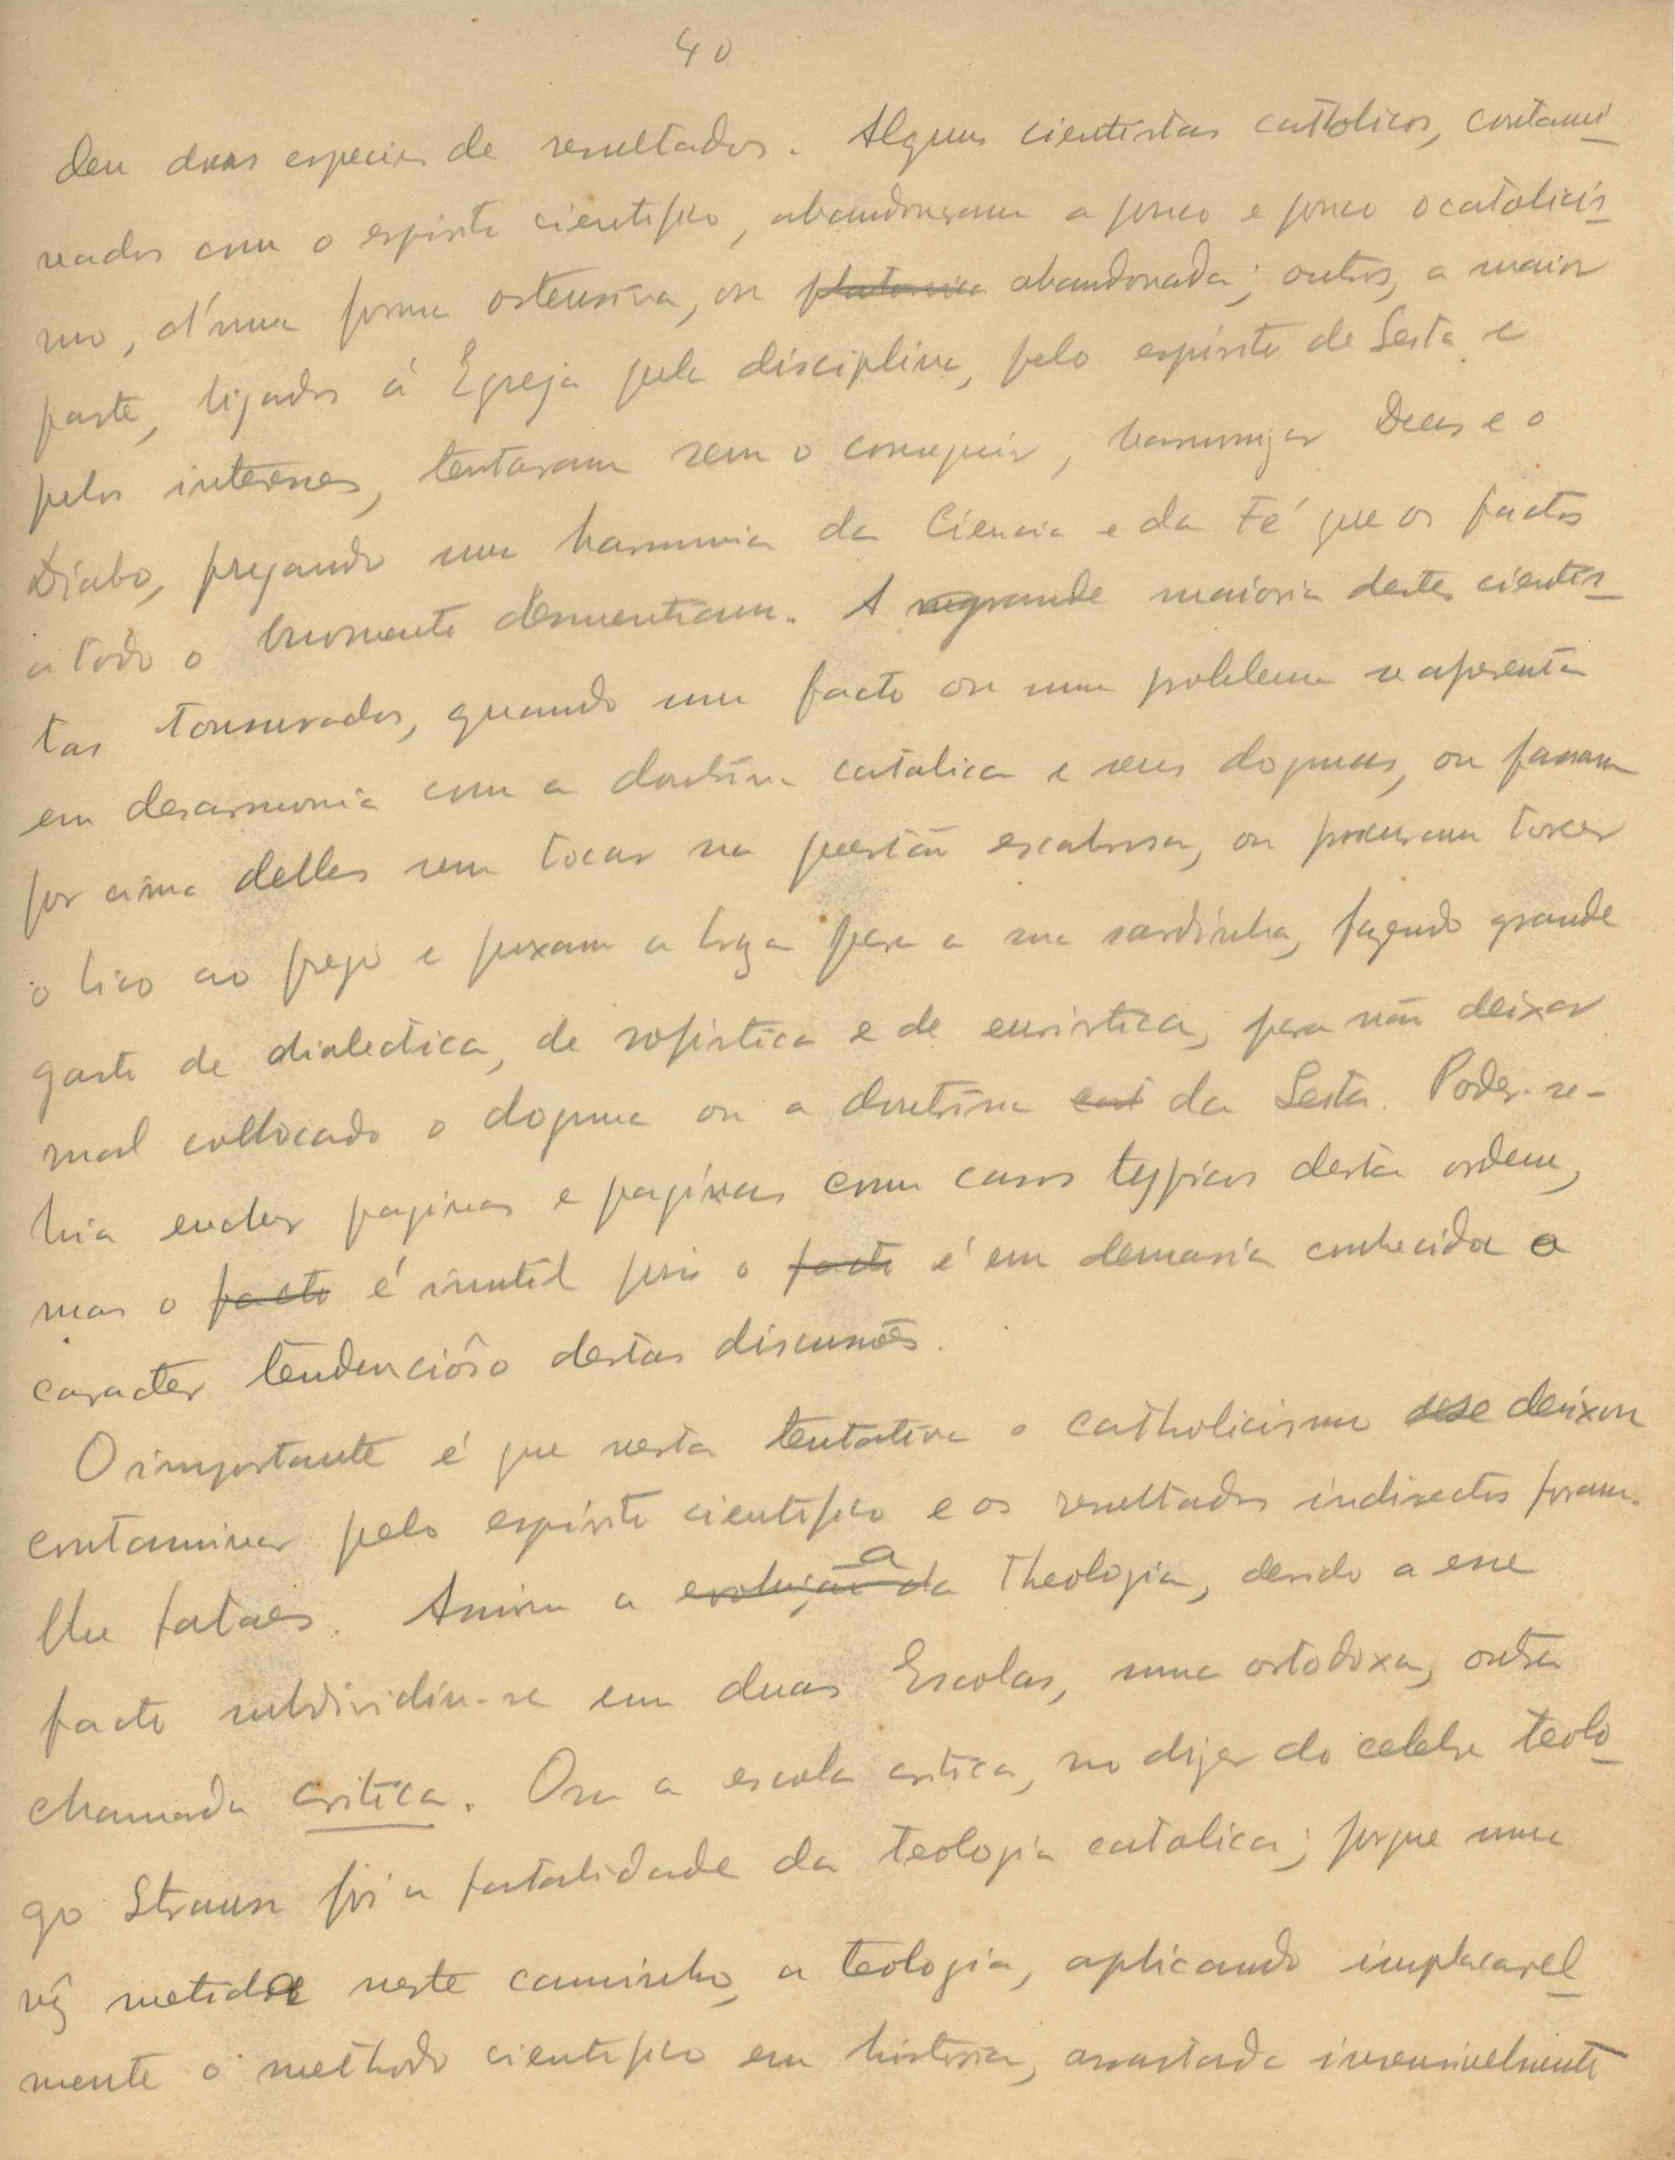 40
deu duas especies de resultados. Alguns cientistas catholicos, contami
nados com o espirito cientifico, abandonaram a pouco e pouco o catolicis
mo, d'uma forma ostensiva, ou platonica abandonada; outros, a maior
parte, ligados á Egreja pela disciplina, pelo espirito de Seita e
pelos interesses, tentaram sem o conseguir, harmonizar Deus e o
Diabo, pregando uma harmonia da Ciencia e da Fé que os factos
a todo o momento desmentiam. A grande maioria destes cientis
tas tonsurados, quando um facto ou um problema se apresenta
em desarmonia com a doutrina catolica e seus dogmas, ou passam
por cima delles sem tocar na questão escabrosa, ou procuram torcer
o bico ao prego e puxam a braza para a sua sardinha, fazendo grande
gasto de dialectica, de sofistica e de euristica, para não deixar
mal collocado o dogma ou a doutrina cat da Seita. Poder-se-
hia encher paginas e paginas com casos typicos desta ordem,
mas o facto é inutil pois o facto é em demasia conhecida o
caracter tendenciôso destas discussões.
O importante é que nesta tentativa o catholicismo se deixou
contaminar pelo espirito cientifico e os resultados indirectos foram-
lhe fataes. Assim a evolução da a Theologia, devido a esse
facto subdividiu-se em duas Escolas, uma ortodoxa, outra
chamada critica. Ora a escola critica, no dizer do celebre teolo
go Strauss foi a fatalidade da teologia catolica; porque uma
vez metida neste caminho, a teologia, aplicando implacavel
mente o methodo cientifico em historia, arrastada insensivelmente